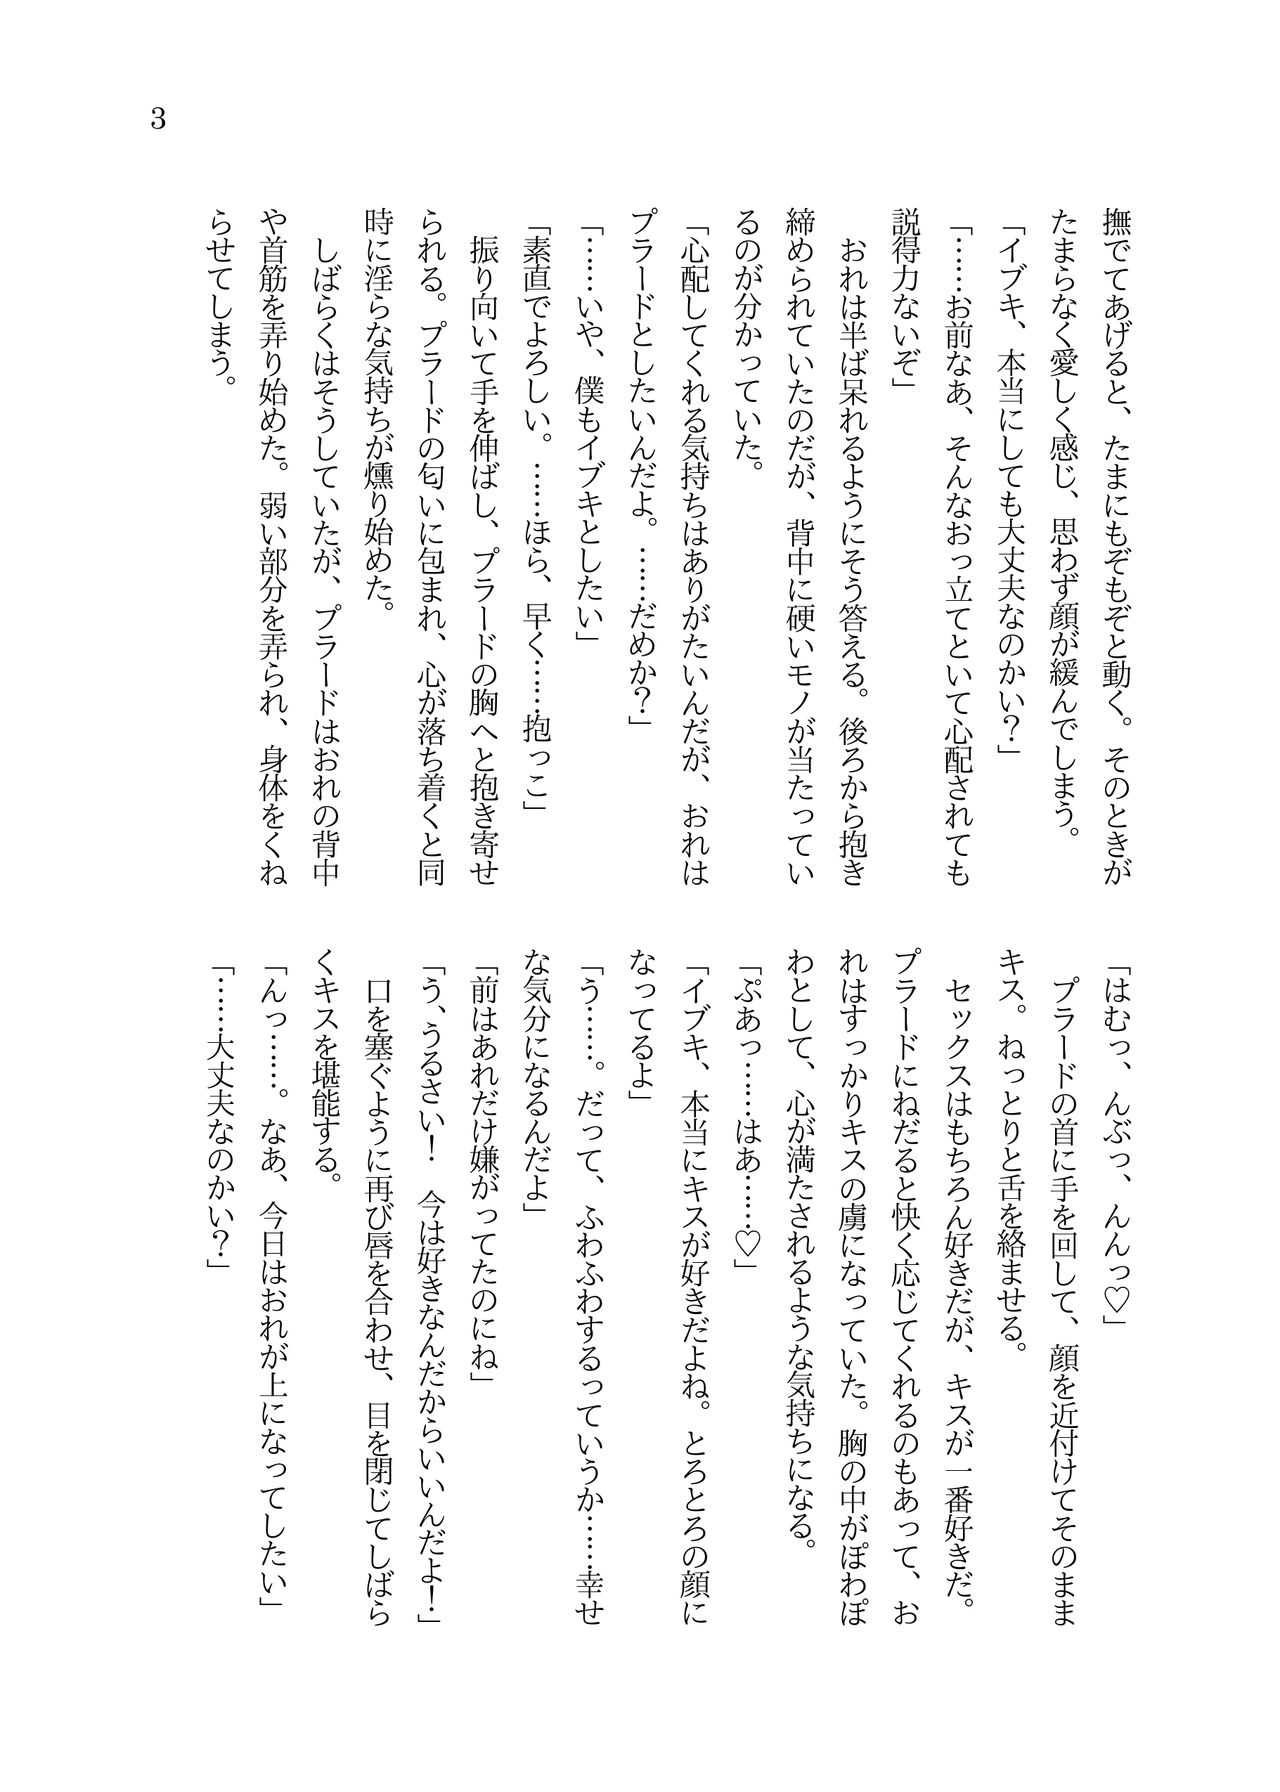 3
撫でてあげると、たまにもぞもぞと動く。そのときが
たまらなく愛しく感じ、思わず顔が緩んでしまう。
「イブキ、本当にしても大丈夫なのかい？」
「……お前なあ、そんなおっ立てといて心配されても
説得力ないぞ」
　おれは半ば呆れるようにそう答える。後ろから抱き
締められていたのだが、背中に硬いモノが当たってい
るのが分かっていた。
「心配してくれる気持ちはありがたいんだが、おれは
プラードとしたいんだよ。……だめか？」
「……いや、僕もイブキとしたい」
「素直でよろしい。……ほら、早く……抱っこ」
　振り向いて手を伸ばし、プラードの胸へと抱き寄せ
られる。プラードの匂いに包まれ、心が落ち着くと同
時に淫らな気持ちが燻り始めた。
　しばらくはそうしていたが、プラードはおれの背中
や首筋を弄り始めた。弱い部分を弄られ、身体をくね
らせてしまう。
「はむっ、んぶっ、んんっ♡」
　プラードの首に手を回して、顔を近付けてそのまま
キス。ねっとりと舌を絡ませる。
　セックスはもちろん好きだが、キスが一番好きだ。
プラードにねだると快く応じてくれるのもあって、お
れはすっかりキスの虜になっていた。胸の中がぽわぽ
わとして、心が満たされるような気持ちになる。
「ぷあっ……はあ……♡」
「イブキ、本当にキスが好きだよね。とろとろの顔に
なってるよ」
「う……。だって、ふわふわするっていうか……幸せ
な気分になるんだよ」
「前はあれだけ嫌がってたのにね」
「う、うるさい！　今は好きなんだからいいんだよ！」
　口を塞ぐように再び唇を合わせ、目を閉じてしばら
くキスを堪能する。
「んっ……。なあ、今日はおれが上になってしたい」
「……大丈夫なのかい？」